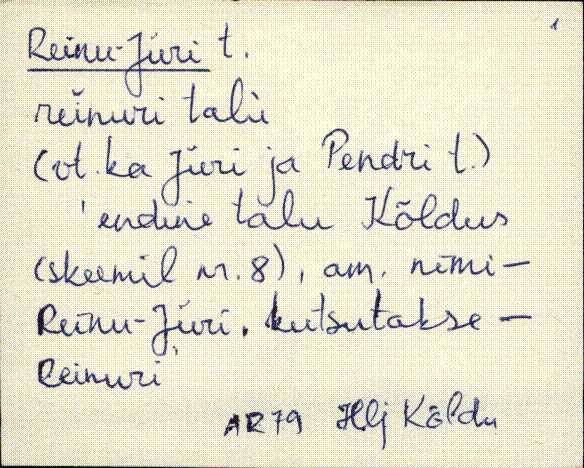 1
Reinu-Jüri t.
reinuri talu
(vt. ka Jüri ja Pendri t.)
'endine talu Kõldus
(skeemil nr. 8), am. nimi -
Reinu-Jüri, kutsutakse -
Reinuri'
AR79 Hlj Kõldu